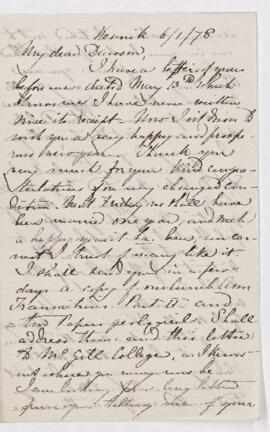 Keswick 6/1/78
My dear Dawson,
I have a letter of yours
before me dated May 13th which
shows me I have never written
since its receipt. Now I sit down to
wish you a very happy and prosper
ous new year. Thank you
very much for your kind congra
tulations for my changed con
dition. Next Friday we shall have
been married one year, and such
a happy year it has been, we can
not I trust if many like it
I shall send you in a few
days a copy of our Cumb. Assn
Transactions. Part II and
two Papers geological. I shall
address them and this letter
to McGill College, as I know
not where you may now be.
I am hoping for a long letter
from you telling me of your